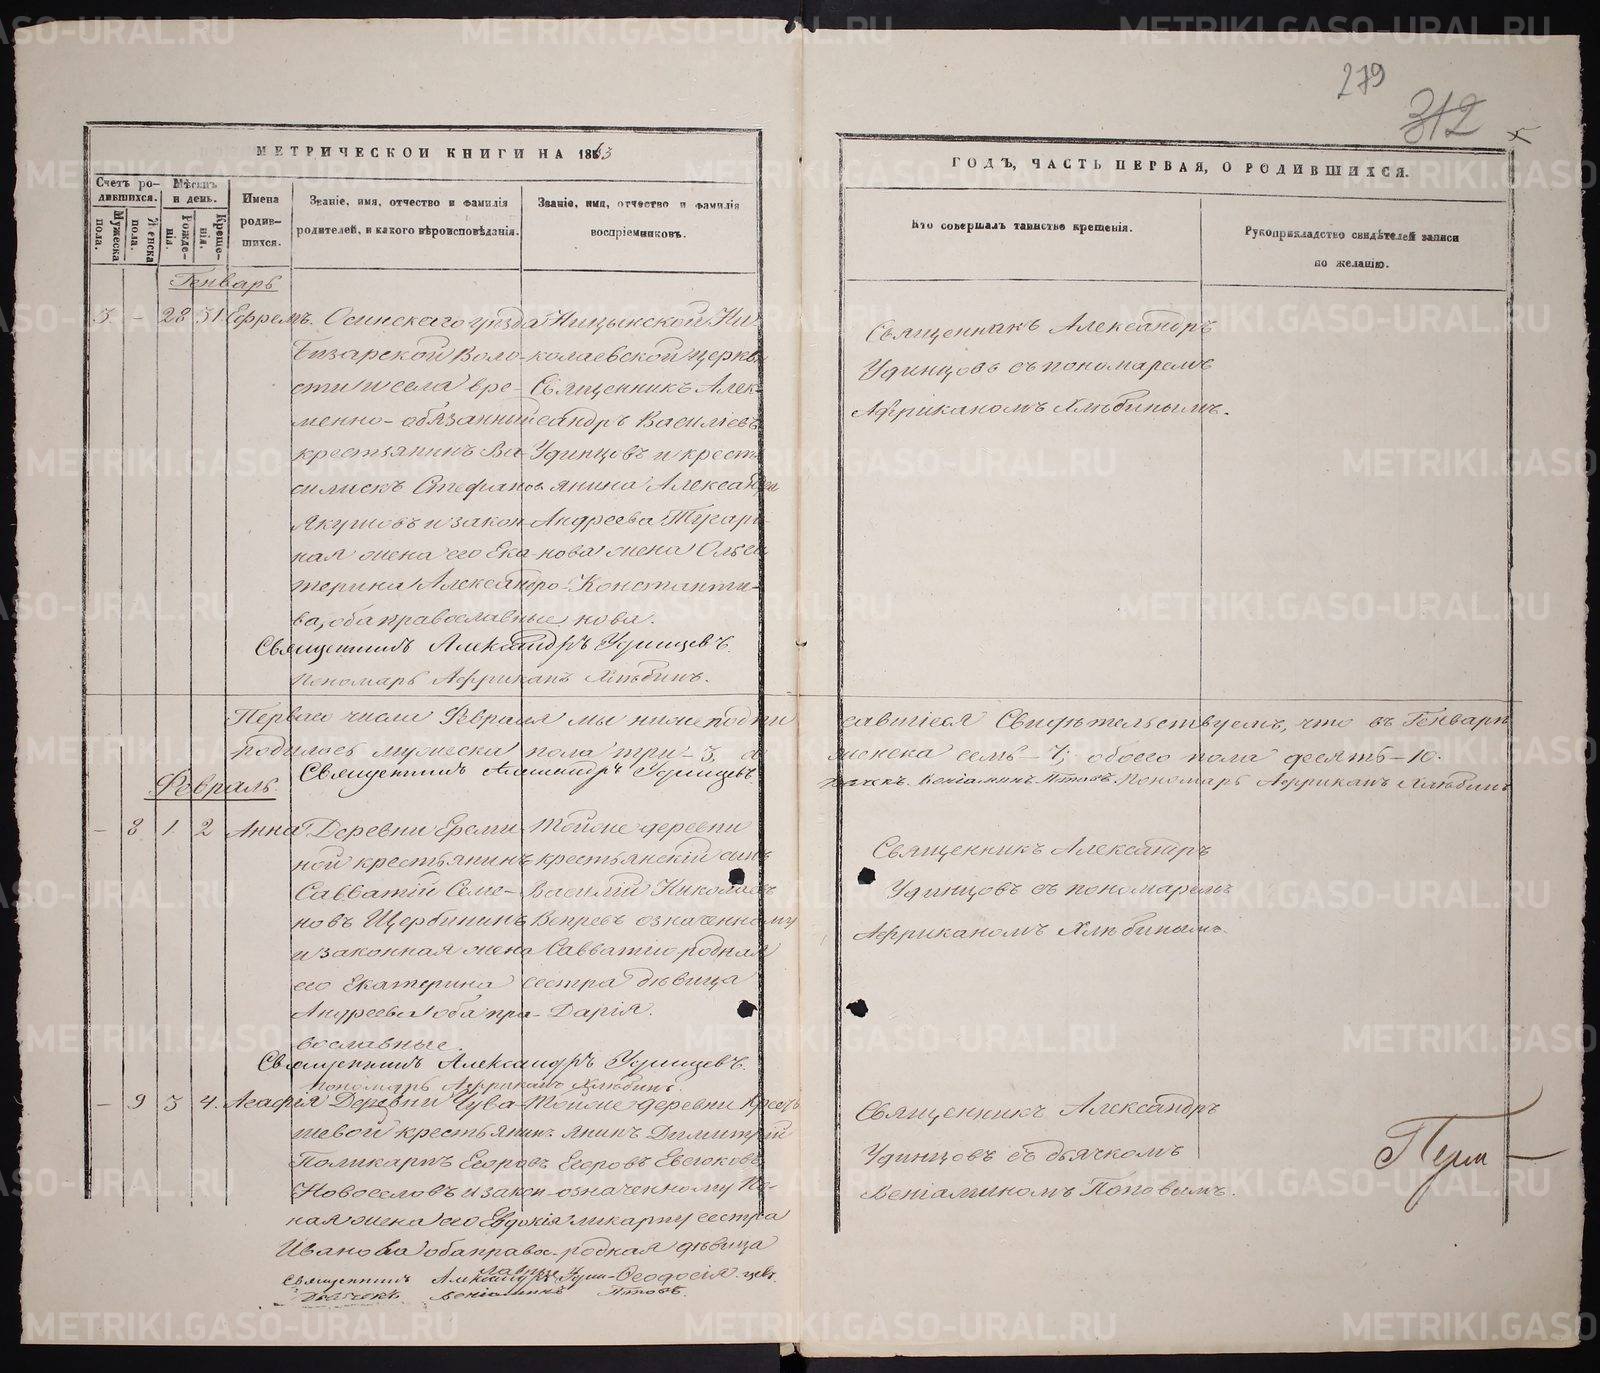 279
312
МЕТРИЧЕСКОЙ КНИГИ НА 1863
ГОДЪ, ЧАСТЬ ПЕРВАЯ, О РОДИВШИХСЯ.
Счетъ родившихся.
Мужеска пола.
Женска пола.
Мѣсяцъ и день.
Рожденія.
Крещенія.
Имена родившихся.
Званіе, имя, отчество и фамилія
родителей, и какого вѣроисповѣданія.
Званіе, имя, отчество и фамилія
воспріемниковъ.
Кто совершалъ таинство крещенія.
Рукоприкладство свидѣтелей записи
по желанію.
Генварь
3 - 28 31 Ефремъ.
Осинскаго уѣзда
Бизарской Воло-
сти и села вре-
менно-обязанный
крестьянинъ Ва-
силискъ Стефановъ
Якушовъ и закон-
ная жена его Ека-
терина Александро-
ва, оба православные
Ницыкской Ни-
колаевской церкви
Священникъ Алек-
сандръ Васильевъ
Удинцовъ и кресть-
янина Александра
Андреева
нова жена Ольга
Константи-
нова.
Священникъ Александръ
Удинцовъ съ пономаремъ
Африканомъ Хлѣбинымъ.
Священникъ Александръ Удинцевъ.
Пономарь Африканъ Хлѣбинъ.
Перваго числа Февраля мы нижеподпи савшіеся Свидѣтельствуемъ, что въ Генварѣ
родилось мужеска пола три-3, а женска семь-7; обоего пола десять-10.
Священникъ Александръ Удинцевъ. Дьячекъ Веніаминъ Поповъ. Пономарь Африканъ Хлѣбинъ
Февраль
- 8 1 2 Анна
Деревни Ереми-
ной крестьянинъ
Савватій Семе-
новъ Щербининъ
и законная жена
его Екатерина
Андреева оба пра-
вославные.
Тойже деревни
крестьянскій сынъ
Василій Николаевъ
Вепревъ означенному
Савватію родная
сестра дѣвица
Дарія.
Священникъ Александръ
Удинцовъ съ пономаремъ
Африканомъ Хлѣбинымъ.
Священникъ Александръ Удинцевъ.
Пономарь Африканъ Хлѣбинъ.
- 9 3 4. Агафія
Деревни Чува-
шевой крестьянинъ
Поликарпъ Егоровъ
Новоселовъ и закон-
ная жена его Евдокія
Иванова оба право-
славные
Тойже деревни Кресть-
янинъ Димитрій
Егоровъ Евсюковъ
означенному По-
ликарпу сестра
родная дѣвица
Ѳеодосія.
Священникъ Александръ
Удинцовъ съ дьячкомъ
Веніаминомъ Поповымъ.
Священникъ Александръ Удинцевъ.
Дьячекъ Веніаминъ Поповъ.
Перм